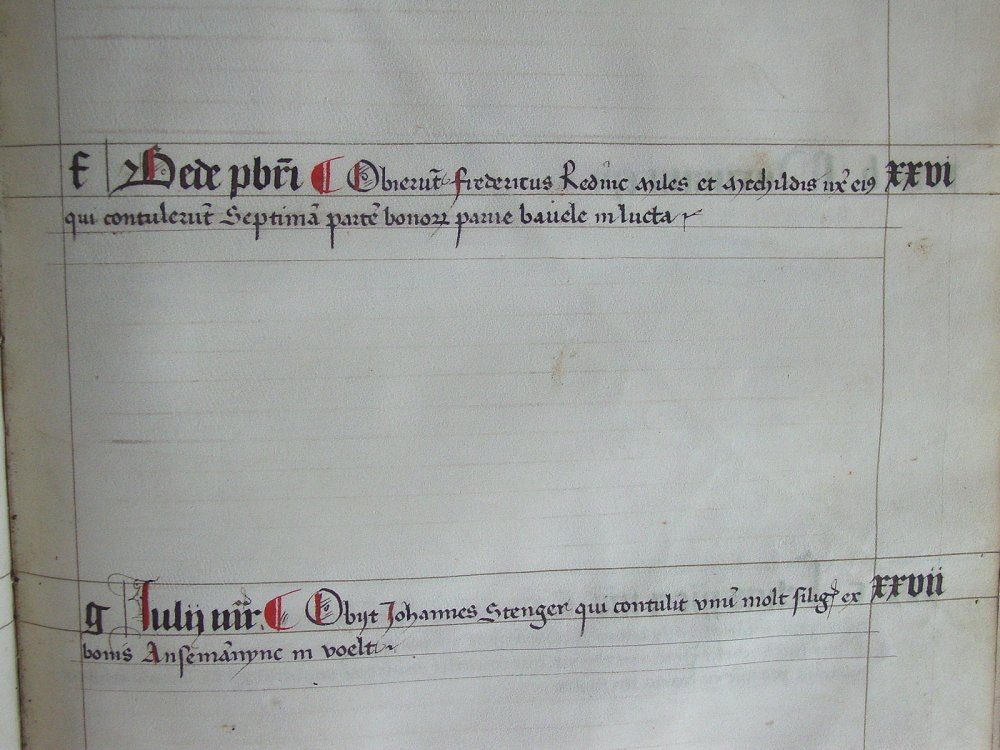 f Bede pbr̄i Obierūt fredericus Redinc miles et mechildis ux̄ ei9 xxvi
qui contulerūt Septimā partē bonoꝝ parue bauele in lucta
g Iulij mr̄. Obyt Johannes Stenger qui contulit vnū molt siliḡ ex xxvii
bonis Ansemānync in voelt